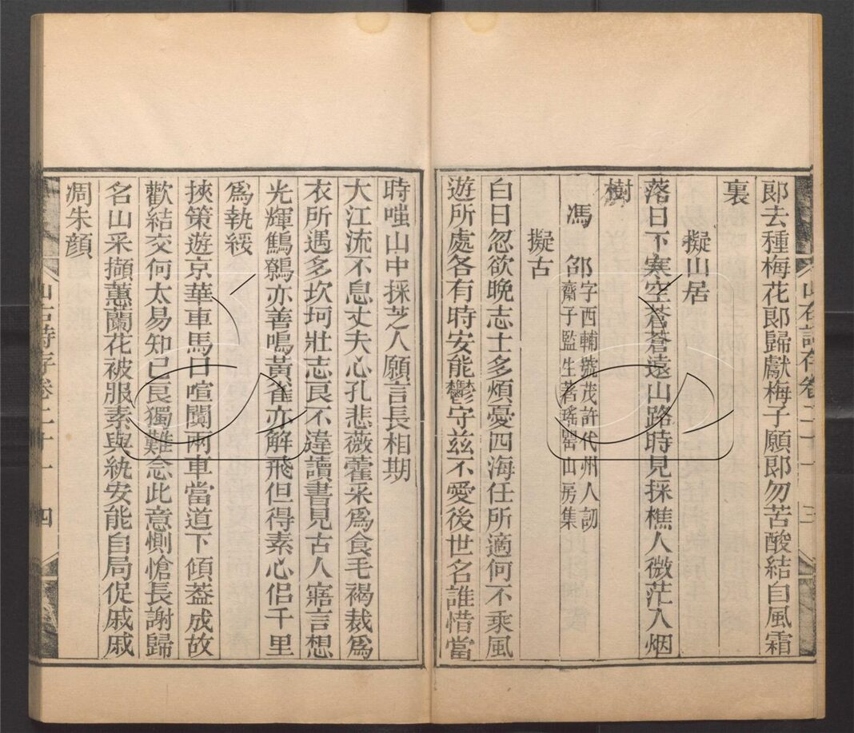 郎去種梅花郎歸獻梅子願郎勿苦酸結自風霜
裏
擬山居
落日下寒空蒼蒼遠山路時見採樵人微茫入烟
樹
馮 字西輔號茂許代州人訒
齋子監生著瑤罌山房集
擬古
白日忽欲晚志士多煩憂四海任所適何不乘風
遊所處各有時安能鬱守兹不愛後世名誰惜當
時嗤山中採芝人願言長相期
大江流不息丈夫心孔悲薇藿采爲食毛褐裁爲
衣所遇多坎坷壯志良不違讀書見古人寤言想
光輝鷦鷯亦善鳴黃雀亦解飛但得素心侣千里
爲執綏
挾策遊京華車馬日喧闐兩車當道下傾葢成故
歡結交何太易知己良獨難念此意惻愴長謝歸
名山采擷蕙蘭花被服素與紈安能自局促戚戚
凋朱顔
山右詩存卷二十一 四